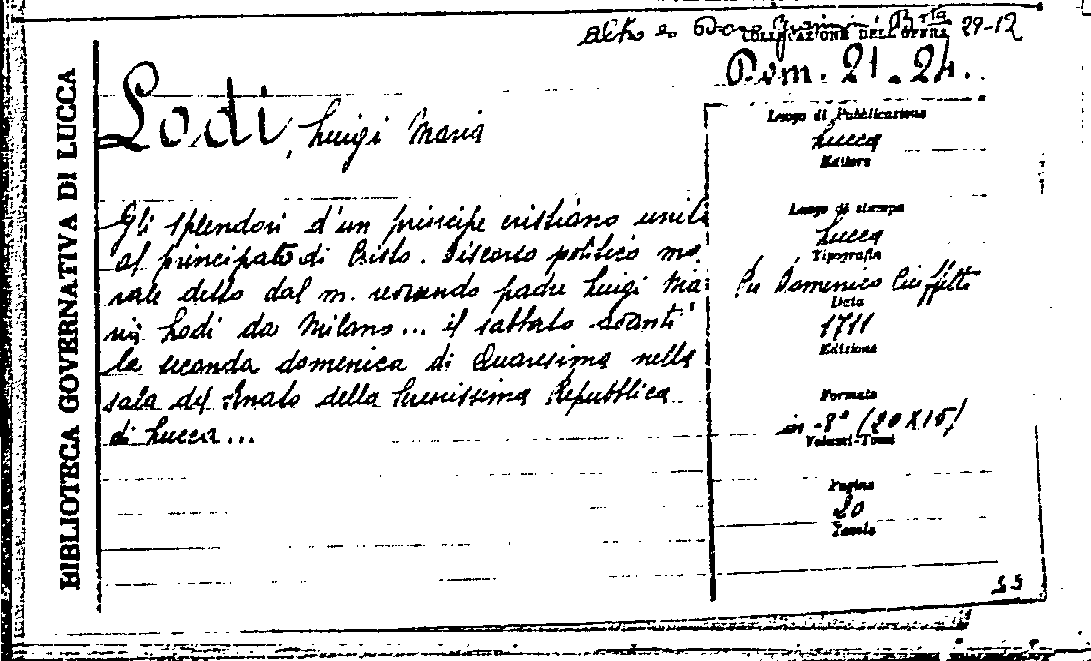 BIBLIOTECA GOVERNATIVA DI LUCCA
Altro es. 29-12
COLLOCAZIONE DELL'OPERA
Dom. 21.24.
Lodi, Luigi Maria
Gli splendori d'un principe cristiano uniti
al principato di Cristo. Discorso politico mo
rale detto dal m. reverendo padre Luigi Ma
ria Lodi da Milano... il sabbato avanti
la seconda domenica di Quaresima nella
sala del Senato della Serenissima Repubblica
di Lucca...
Luogo di Pubblicazione
Lucca
Editore
Luogo di stampa
Lucca
Tipografia
Per Domenico Ciuffetti
Data
1711
Edizione
Formato
in-8° (20X15)
Volumi-Tomi
Pagine
20
Tavole